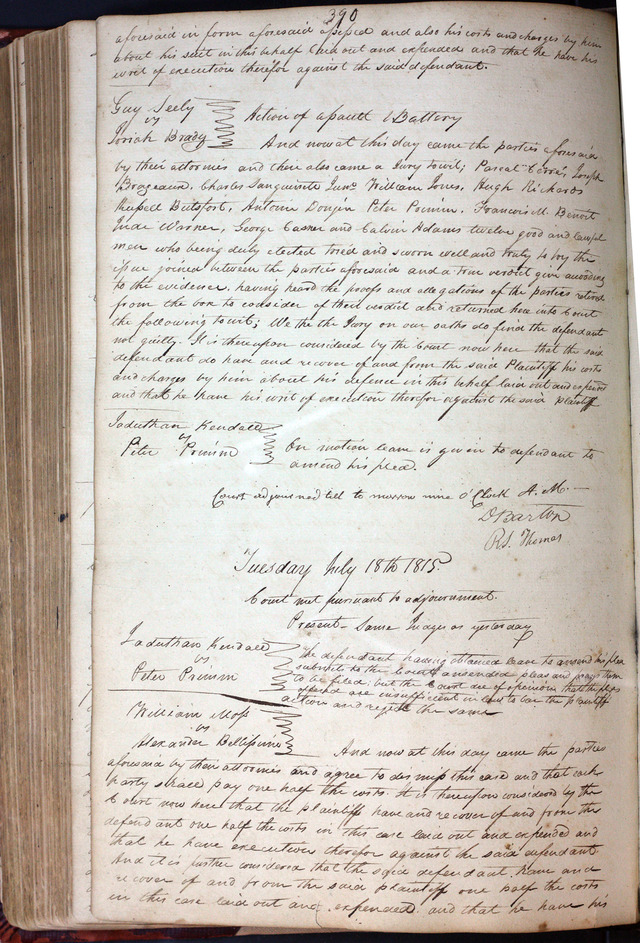 390
aforesaid in form aforesaid assessed and also his costs and charges by him
about his suit in this behalf laid out and expended and that he have his
writ of execution therefor against the said defendant.
Guy Seely
vs
Josiah Brady
Action of assault & Battery
And now at this day came the parties aforesaid
by their attornies and then also came a Jury towit; Pascal Cerré, Joseph
Charles Sanguinette Junr. William Jones, Hugh Richards
Russell Botsfort, Antoine Peter Primm, Francois M. Benoit
Warner, George Casner and Calvin Adams twelve good and lawful
men who being duly elected tried and sworn well and truly to try the
issue joined between the parties aforesaid and a true verdict give according
to the evidence, having heard the proofs and allegations of the parties retired
from the box to consider of their verdict and returned here into Court
the following towit; We the the Jury on our oaths do find the defendant
not guilty. It is thereupon considered by the Court now here that the said
defendant do have and recover of and from the said Plaintiff his costs
and charges by him about his defence in this behalf laid out and expened
and that he have his writ of execution therefor against the said plaintiff
Jaduthan Kendall
vs
Peter Primm
On motion leave is given to defendant to
amend his plea.
Court adjourned till to morrow nine o'Clock A.M.
D Barton
R.S. Thomas
Tuesday July 18th 1815.
Court met pursuant to adjournment.
Present - Same Judges as yesterday
Jaduthan Kendall
vs
Peter Primm
The defendant having obtained leave to amend his plea
submits to the Court amended pleas and prays them
to be filed; but the Court are of opinion that the pleas
offered are insufficient in law to bar the plaintiff
action and reject the same
William Moss
vs
Alexander Bellissime
And now at this day came the parties
aforesaid by their attornies and agree to dismiss this case and that each
party shall pay one half the costs. It is thereupon considered by the
Court now here that the plaintiff have and recover of and from the
defendant one half the costs in this case laid out and expended and
that he have execution therefor against the said defendant
And it is further considered that the said defendant have and
recover of and from the said plaintiff one half the costs
in this case laid out and expended and that he have his